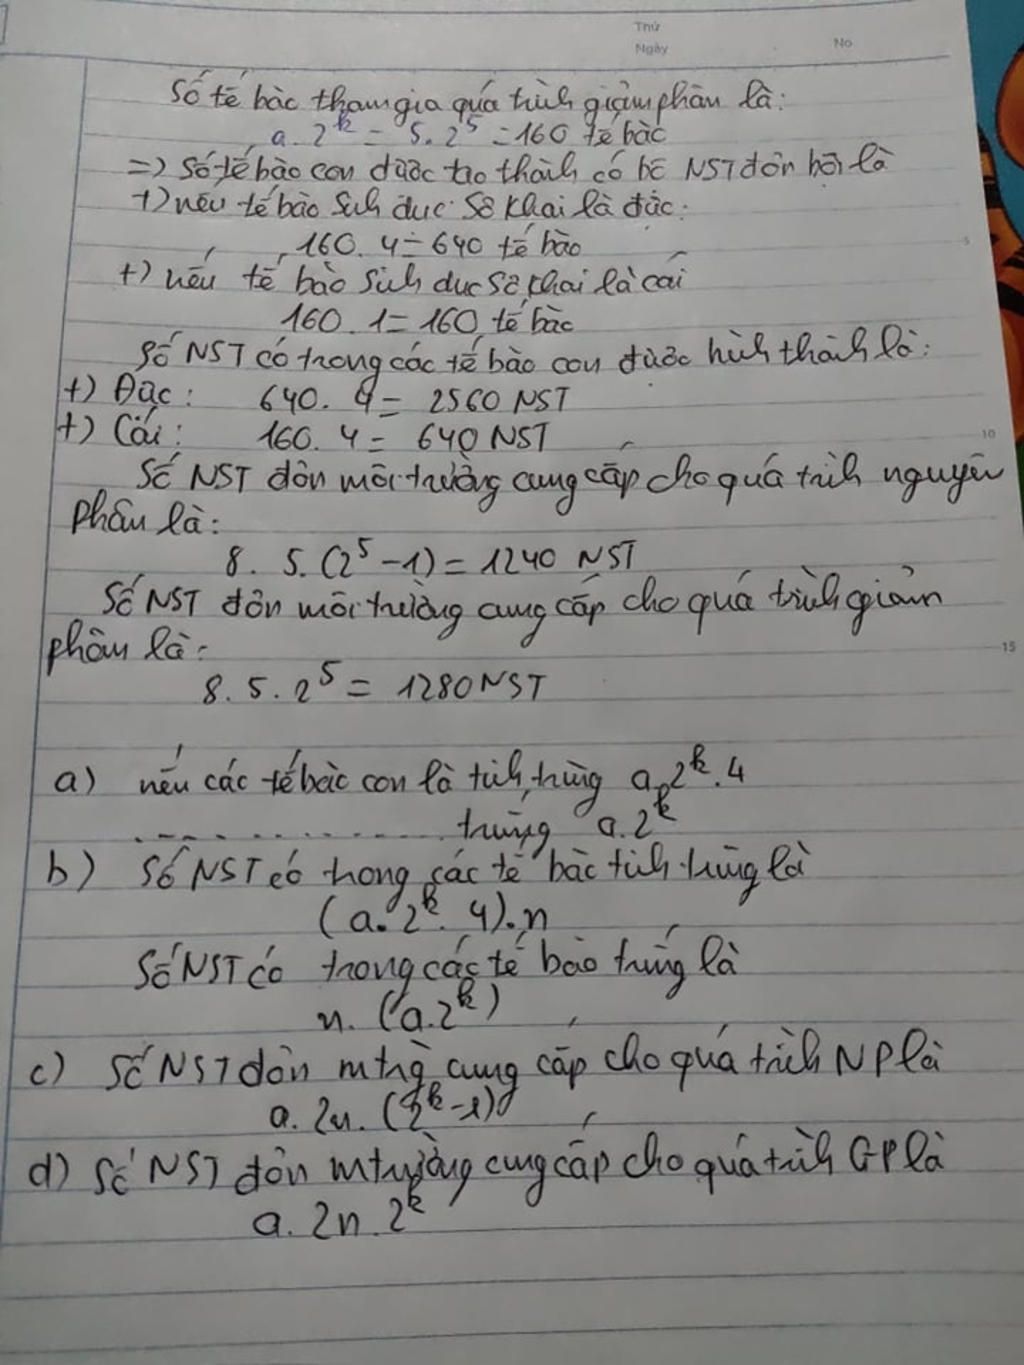 Thứ
Ngày
No
Số tế bào tham gia quá trình giảm phân là:
a. 2^k = 5. 2^5 = 160 tế bào
=> Số tế bào con được tạo thành có bộ NST đơn bội là
+) nếu tế bào sinh dục sơ khai là đực:
160. 4 = 640 tế bào
+) nếu tế bào sinh dục sơ khai là cái
160. 1 = 160 tế bào
Số NST có trong các tế bào con được hình thành là:
+) Đực: 640. 4 = 2560 NST
+) Cái: 160. 4 = 640 NST
10
Số NST đơn môi trường cung cấp cho quá trình nguyên
phân là:
8. 5. (2^5 - 1) = 1240 NST
Số NST đơn môi trường cung cấp cho quá trình giảm
phân là:
15
8. 5. 2^5 = 1280 NST
a) nếu các tế bào con là tinh trùng a. 2^k. 4
................ trứng a. 2^k
b) Số NST có trong các tế bào tinh trùng là
(a. 2^k. 4). n
Số NST có trong các tế bào trứng là
n. (a. 2^k)
c) Số NST đơn mtrg cung cấp cho quá trình NP là
a. 2n. (2^k - 1)
d) Số NST đơn mtrường cung cấp cho quá trình GP là
a. 2n. 2^k